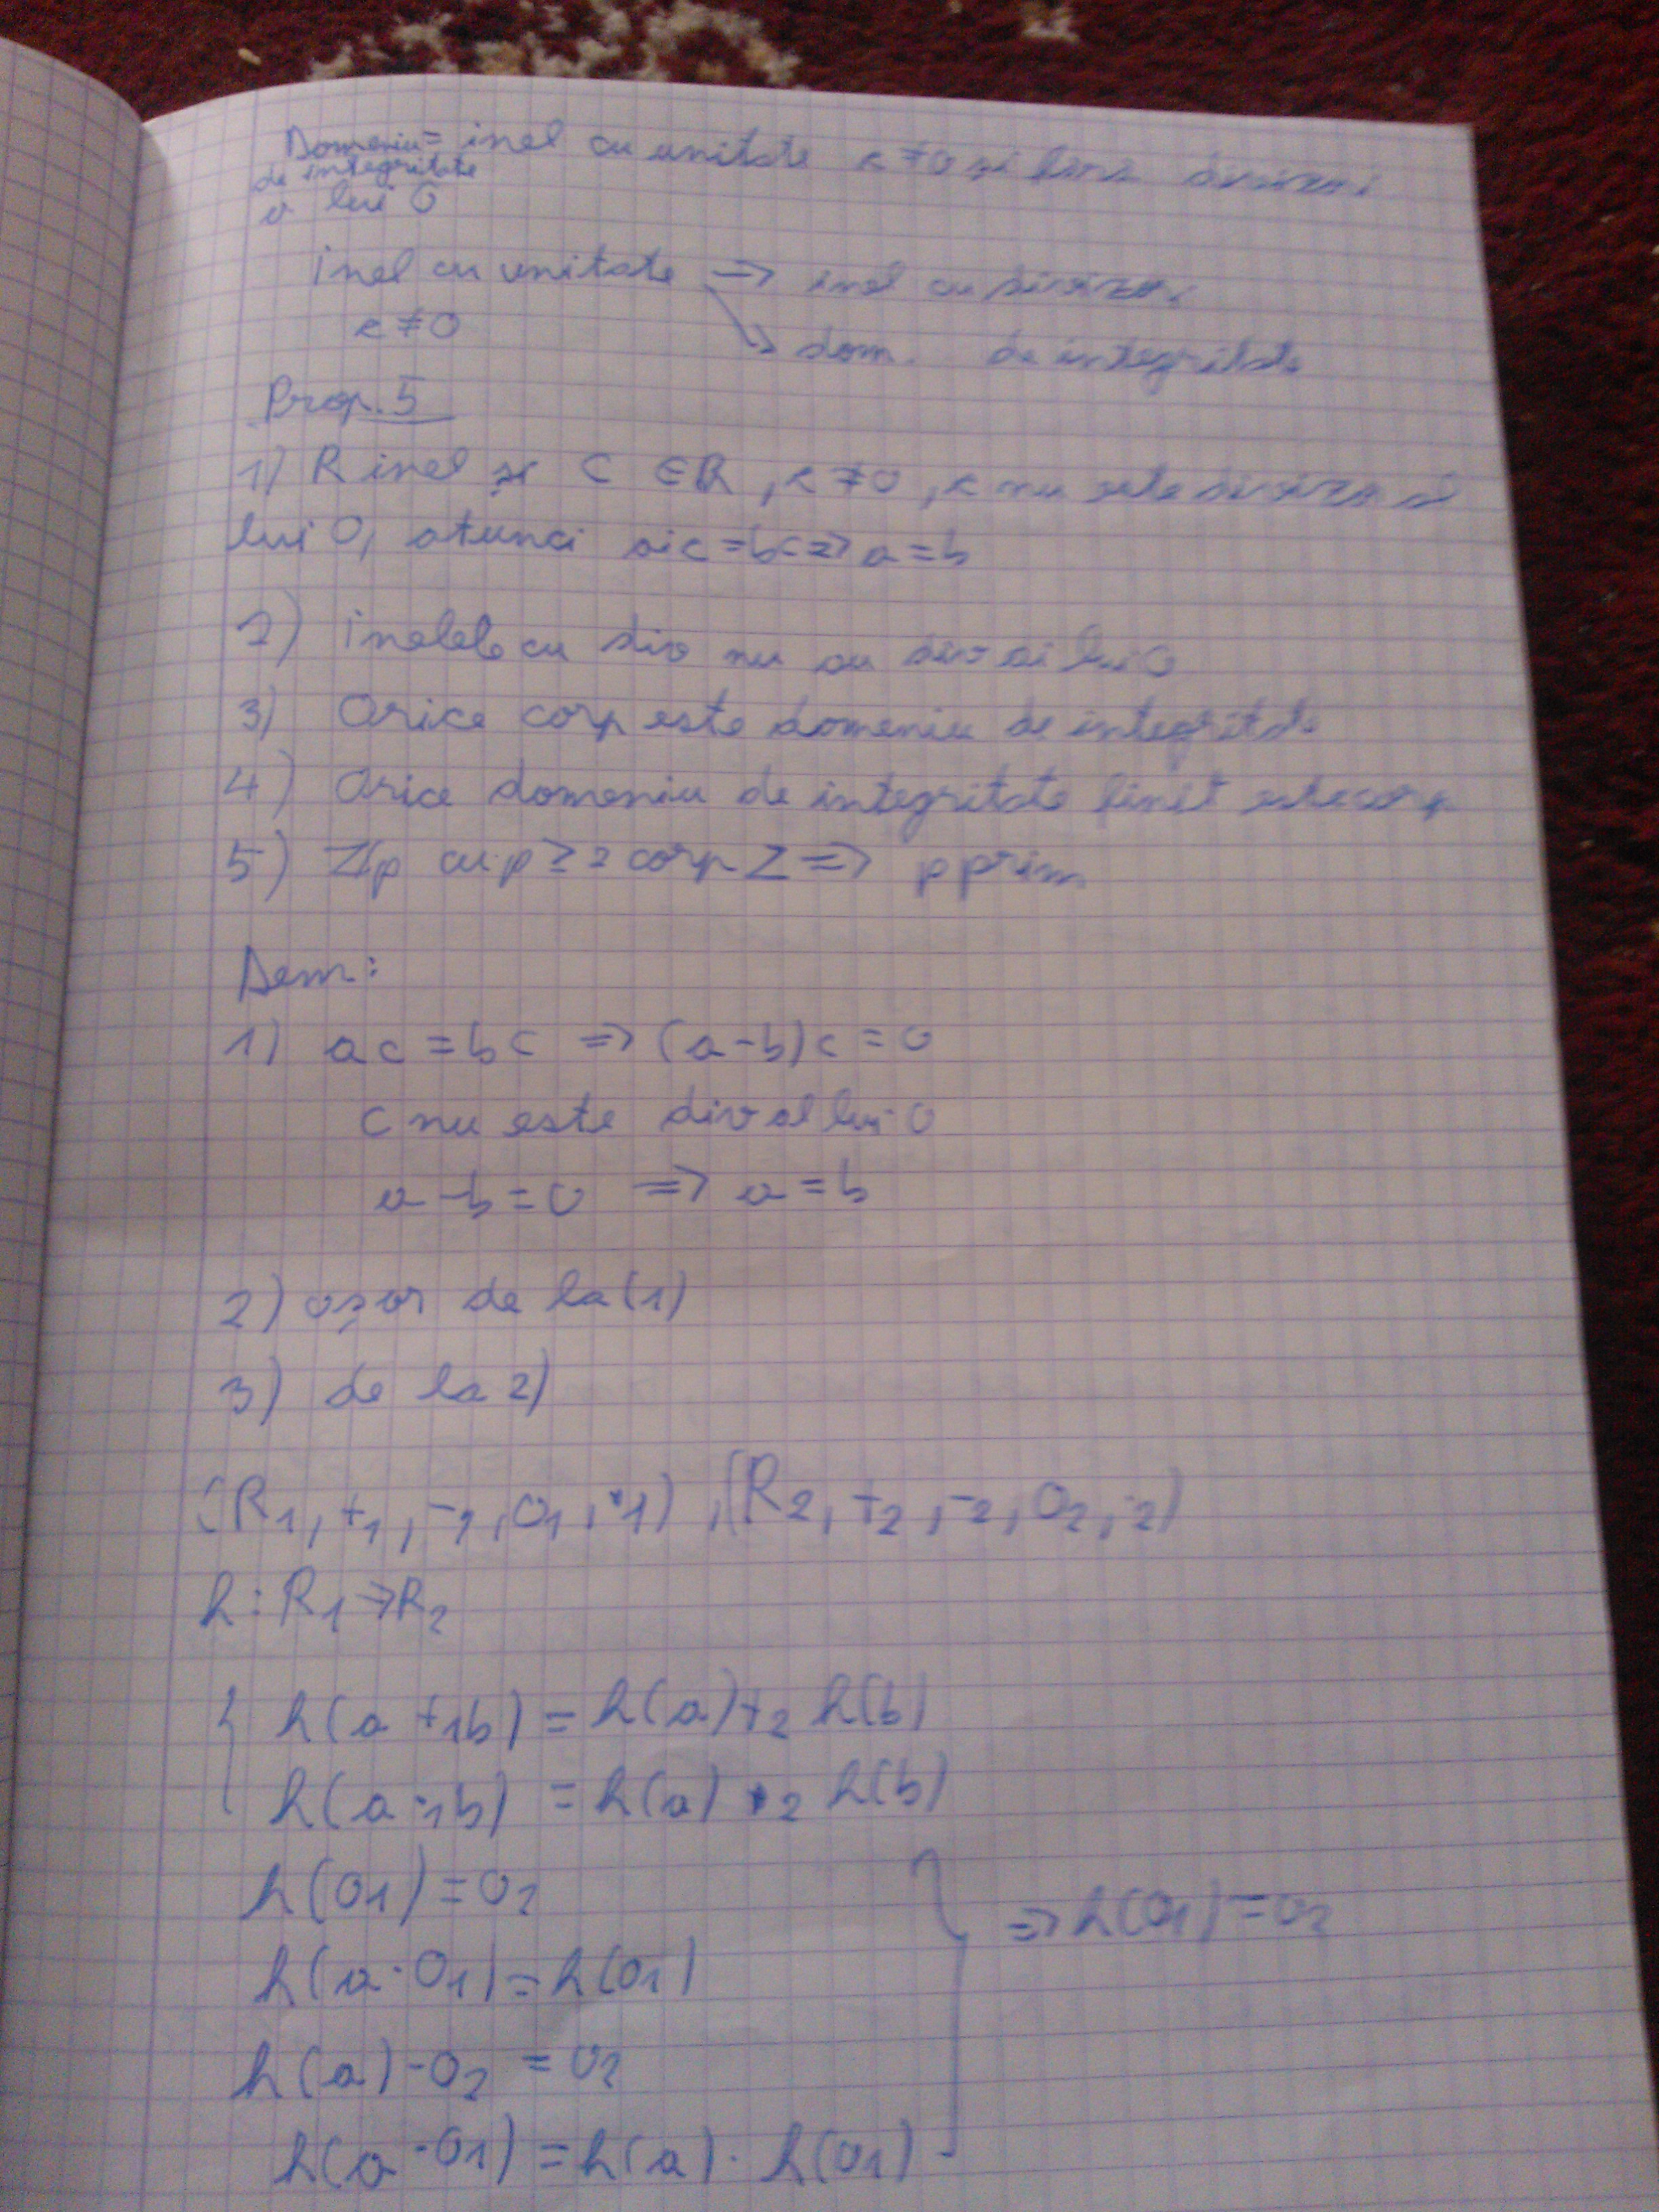 Domeniu = inel cu unitate e ≠ 0 și fără divizori
de integritate
a lui 0
Inel cu unitate => inel cu divizori
e ≠ 0
↘ dom. de integritate
Prop. 5
1) R inel și C ∈ R, c ≠ 0, c nu este divizor al
lui 0, atunci ac = bc => a = b
2) Inelele cu div nu au div ai lui 0
3) Orice corp este domeniu de integritate
4) Orice domeniu de integritate finit este corp
5) Zp cu p ≥ 2 corp <=> p prim
Dem:
1) ac = bc => (a-b)c = 0
C nu este div al lui 0
a - b = 0 => a = b
2) ușor de la (1)
3) de la 2)
(R1, +1, -1, 01, ·1), (R2, +2, -2, 02, ·2)
h: R1 → R2
{ h(a +1 b) = h(a) +2 h(b)
h(a ·1 b) = h(a) ·2 h(b)
h(01) = 02
} => h(01) = 02
h(a · 01) = h(01)
h(a) · 02 = 02
h(a · 01) = h(a) · h(01)